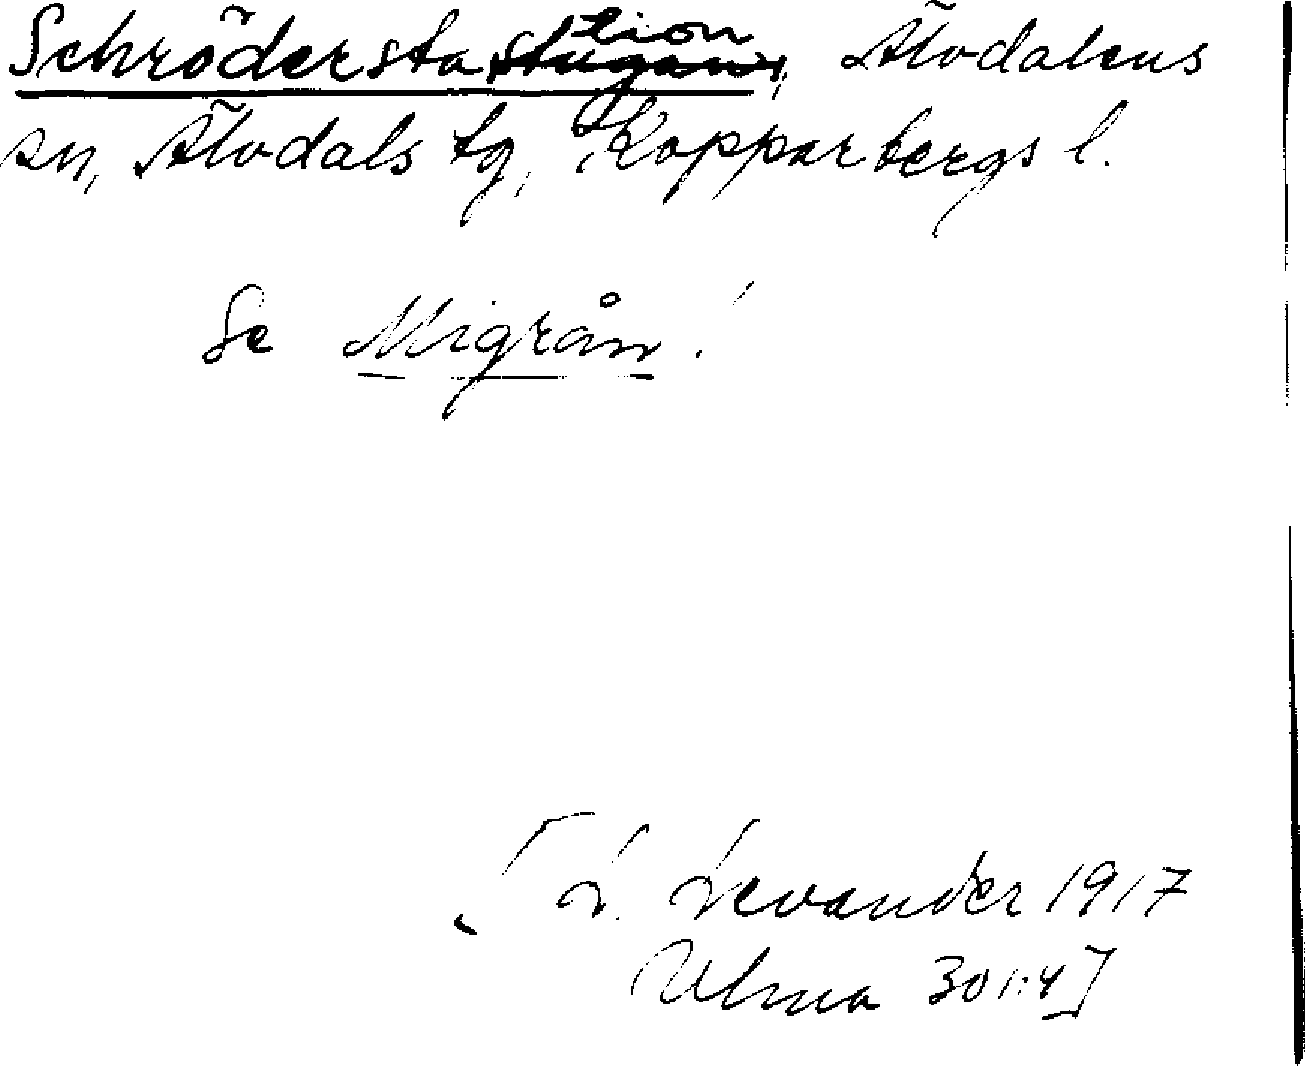 Schröderstation, Älvdalens
sn, Älvdals tg, Kopparbergs l.
Se Migrån!
[L. Levander 1917
Ulma 301:4]